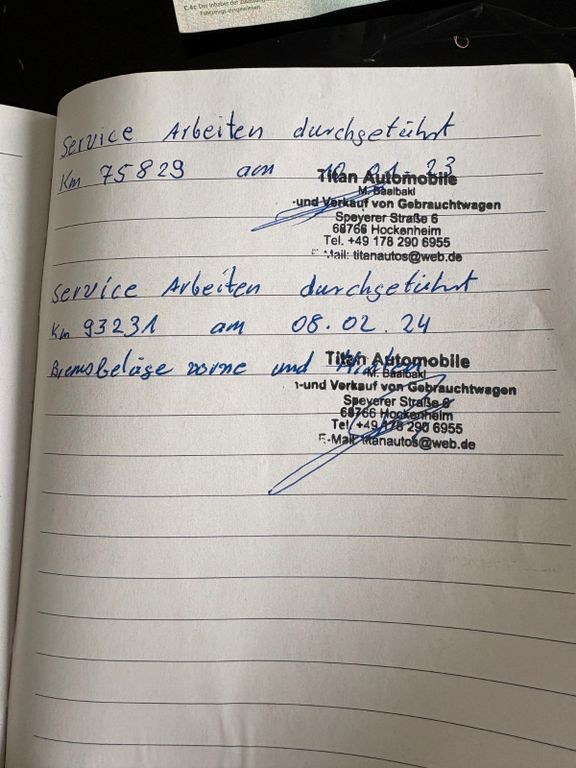 C.4c Der Inhaber der Zulassungs
Fahrzeugs ausgewiesen.
Service Arbeiten durchgeführt
Km 75829 am 23
Titan Automobile
M. Baalbaki
-und Verkauf von Gebrauchtwagen
Speyerer Straße 6
68766 Hockenheim
Tel. +49 178 290 6955
Mail: titanautos@web.de
Service Arbeiten durchgeführt
Km 93231 am 08.02.24
Bremsbeläge vorne und Hinten
Titan Automobile
M. Baalbaki
-und Verkauf von Gebrauchtwagen
Speyerer Straße 6
68766 Hockenheim
Tel. +49 178 290 6955
E-Mail: titanautos@web.de